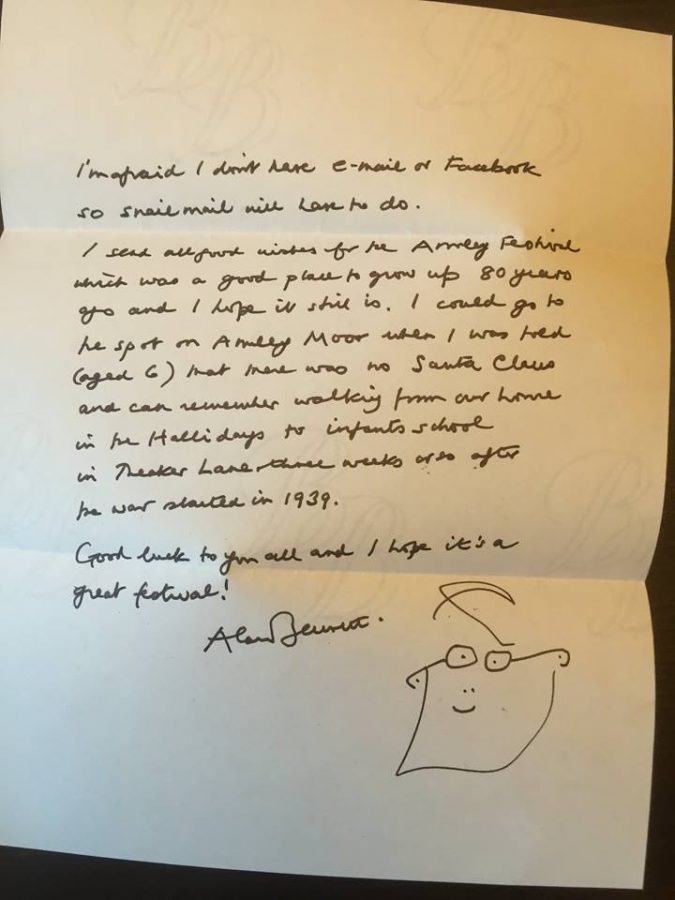 I'm afraid I don't have e-mail or Facebook
so snail mail will have to do.
I send all good wishes for the Armley Festival
which was a good place to grow up 80 years
ago and I hope it still is. I could go to
the spot on Armley Moor when I was told
(aged 6) that there was no Santa Claus
and can remember walking from our home
in the Hallidays to infants school
in Theaker Lane three weeks or so after
the war started in 1939.
Good luck to you all and I hope it's a
great festival!
Alan Bennett.